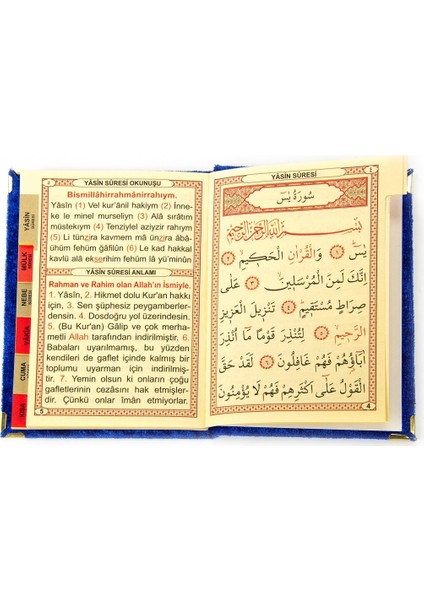 YÂSÎN SÛRESİ OKUNUŞU
Bismillâhirrahmânirrahıym.
Yâsîn (1) Vel kur'ânil hakiym (2) İnne-
ke le minel murseliyn (3) Alâ sırâtım
müstekıym (4) Tenziylel aziyzir rahıym
(5) Li tünzira kavmem mâ ünzira âbâ-
ühüm fehüm ğâfilûn (6) Le kad hakkal
kavlü alâ ekserihim fehüm lâ yü'minûn
YÂSÎN SÛRESİ ANLAMI
Rahman ve Rahim olan Allah'ın İsmiyle.
1. Yâsîn, 2. Hikmet dolu Kur'an hakkı
için, 3. Sen şüphesiz peygamberlerden-
sin. 4. Dosdoğru yol üzerindesin.
5. (Bu Kur'an) Gâlip ve çok merha-
metli Allah tarafından indirilmiştir. 6.
Babaları uyarılmamış, bu yüzden
kendileri de gaflet içinde kalmış bir
toplumu uyarman için indirilmiş-
tir. 7. Yemin olsun ki onların çoğu
gafletlerinin cezasını hak etmişler-
dir. Çünkü onlar îmân etmiyorlar.
5
YÂSÎN
SÛRESİ
MÜLK
NEBE
VÂKIA
CUMA
KISA
YÂSÎN SÛRESİ
٤
سُورَةُ يٰسٓ
بِسْمِ اللّٰهِ الرَّحْمٰنِ الرَّحِيمِ
يٰسٓ ﴿١﴾ وَالْقُرْاٰنِ الْحَكِيمِ ﴿٢﴾
اِنَّكَ لَمِنَ الْمُرْسَلِينَ ﴿٣﴾ عَلٰى
صِرَاطٍ مُسْتَقِيمٍ ﴿٤﴾ تَنْزِيلَ الْعَزِيزِ
الرَّحِيمِ ﴿٥﴾ لِتُنْذِرَ قَوْمًا مَٓا اُنْذِرَ
اٰبَٓاؤُهُمْ فَهُمْ غَافِلُونَ ﴿٦﴾ لَقَدْ حَقَّ
الْقَوْلُ عَلٰٓى اَكْثَرِهِمْ فَهُمْ لَا يُؤْمِنُونَ
4